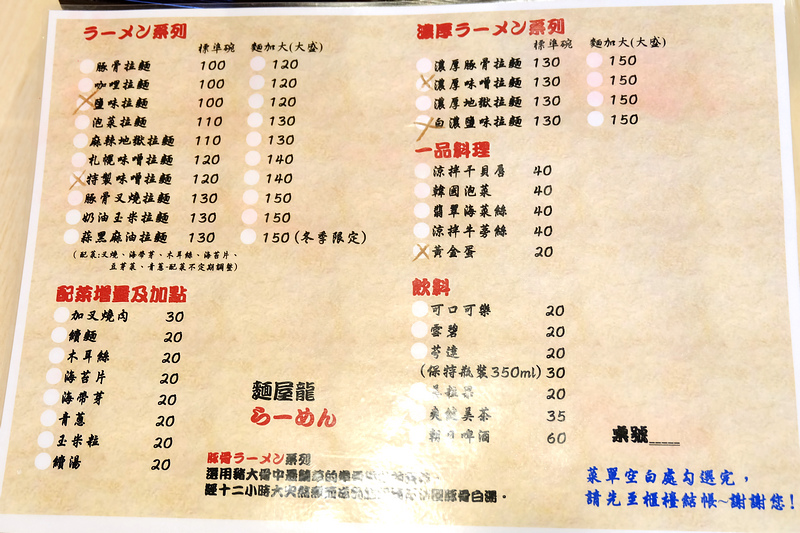 ラーメン系列
標準碗 麵加大(大盛)
豚骨拉麵 100 120
咖哩拉麵 100 120
鹽味拉麵 100 120
泡菜拉麵 110 130
麻辣地獄拉麵 110 130
札幌味噌拉麵 120 140
特製味噌拉麵 120 140
豚骨叉燒拉麵 130 150
奶油玉米拉麵 130 150
蒜黑麻油拉麵 130 150(冬季限定)
(配菜:叉燒、海帶芽、木耳絲、海苔片、
豆芽菜、青蔥-配菜不定期調整)
配菜增量及加點
加叉燒肉 30
續麵 20
木耳絲 20
海苔片 20
海帶芽 20
青蔥 20
玉米粒 20
續湯 20
濃厚ラーメン系列
標準碗 麵加大(大盛)
濃厚豚骨拉麵 130 150
濃厚味噌拉麵 130 150
濃厚地獄拉麵 130 150
白濃鹽味拉麵 130 150
一品料理
涼拌干貝唇 40
韓國泡菜 40
翡翠海菜絲 40
涼拌牛蒡絲 40
黃金蛋 20
飲料
可口可樂 20
雪碧 20
芬達 20
(保特瓶裝350ml) 30
20
爽健美茶 35
啤酒 60
麵屋龍
らーめん
豚骨ラーメン系列
選用豬大骨中最
經十二小時大火 豚骨白湯。
桌號____
菜單空白處勾選完,
請先至櫃檯結帳~謝謝您!